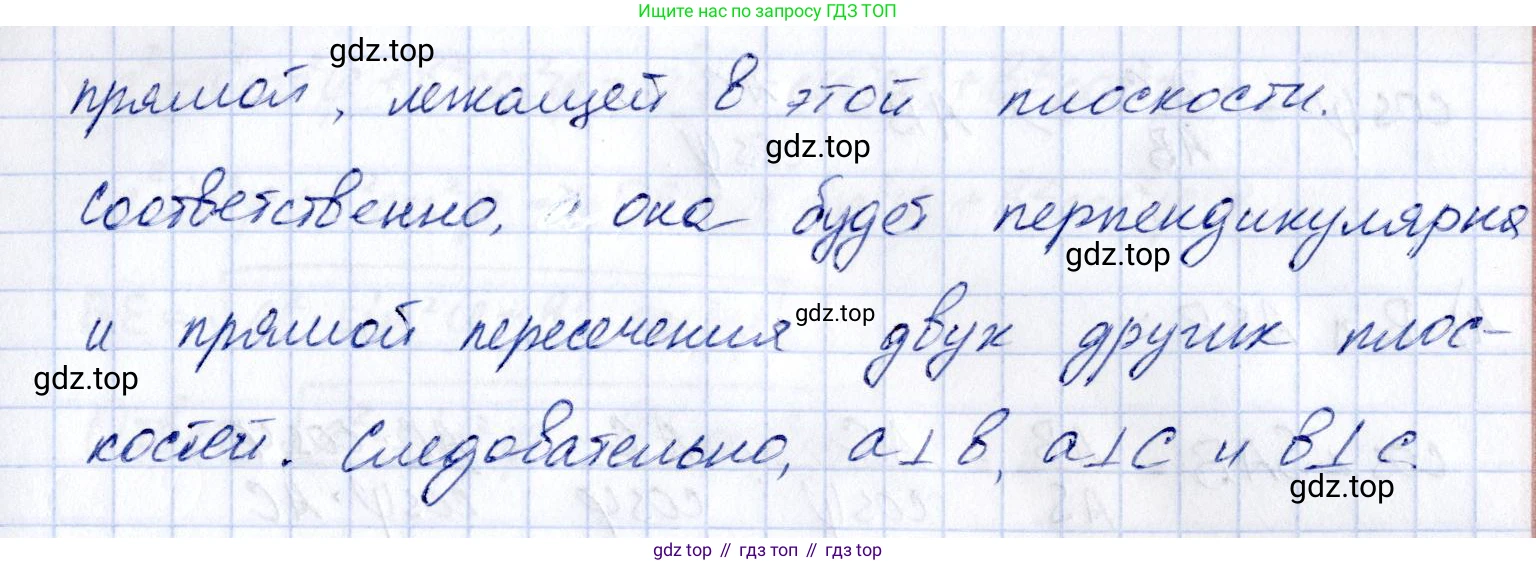 Ищите нас по запросу ГДЗ ТОП
gdz.top
прямой, лежащей в этой плоскости.
gdz.top
Соответственно, она будет перпендикулярна
gdz.top
gdz.top
и прямой пересечения двух других плос-
gdz.top
костей. Следовательно, a⊥b, a⊥c и b⊥c.
gdz.top
gdz top // гдз топ // гдз top